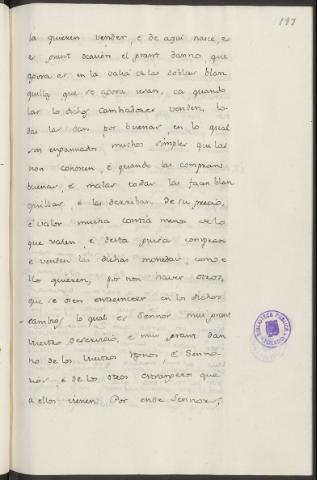 197
la quieren vender, é de aqui nace, é
es grant ocasion el grant danno, que
agora es en la valia de las doblas blan
quillas, que se agora usan, ca quando
las los dichos cambiadores venden, to-
das las dan por buenas, en lo qual
son engannados muchos simples que las
non conoscen, é quando las compran
buenas, é malas todas las facen blan
quillas, é las derriban de su precio,
é valor mucha contia menos de lo
que valen, é desta guisa compran
é venden las dichas monedas, como e
llos quieren, por non haver otros,
que se osen entremeter en los dichos
cambios, lo qual es Sennor muy grant
vuestro deservicio, é muy grant dan
no de los vuestros Regnos, é Senno-
rios, é de los otros estrangeros que
a ellos vienen. Por ende Sennor,
BIBLIOTECA PUBLICA
TOLEDO